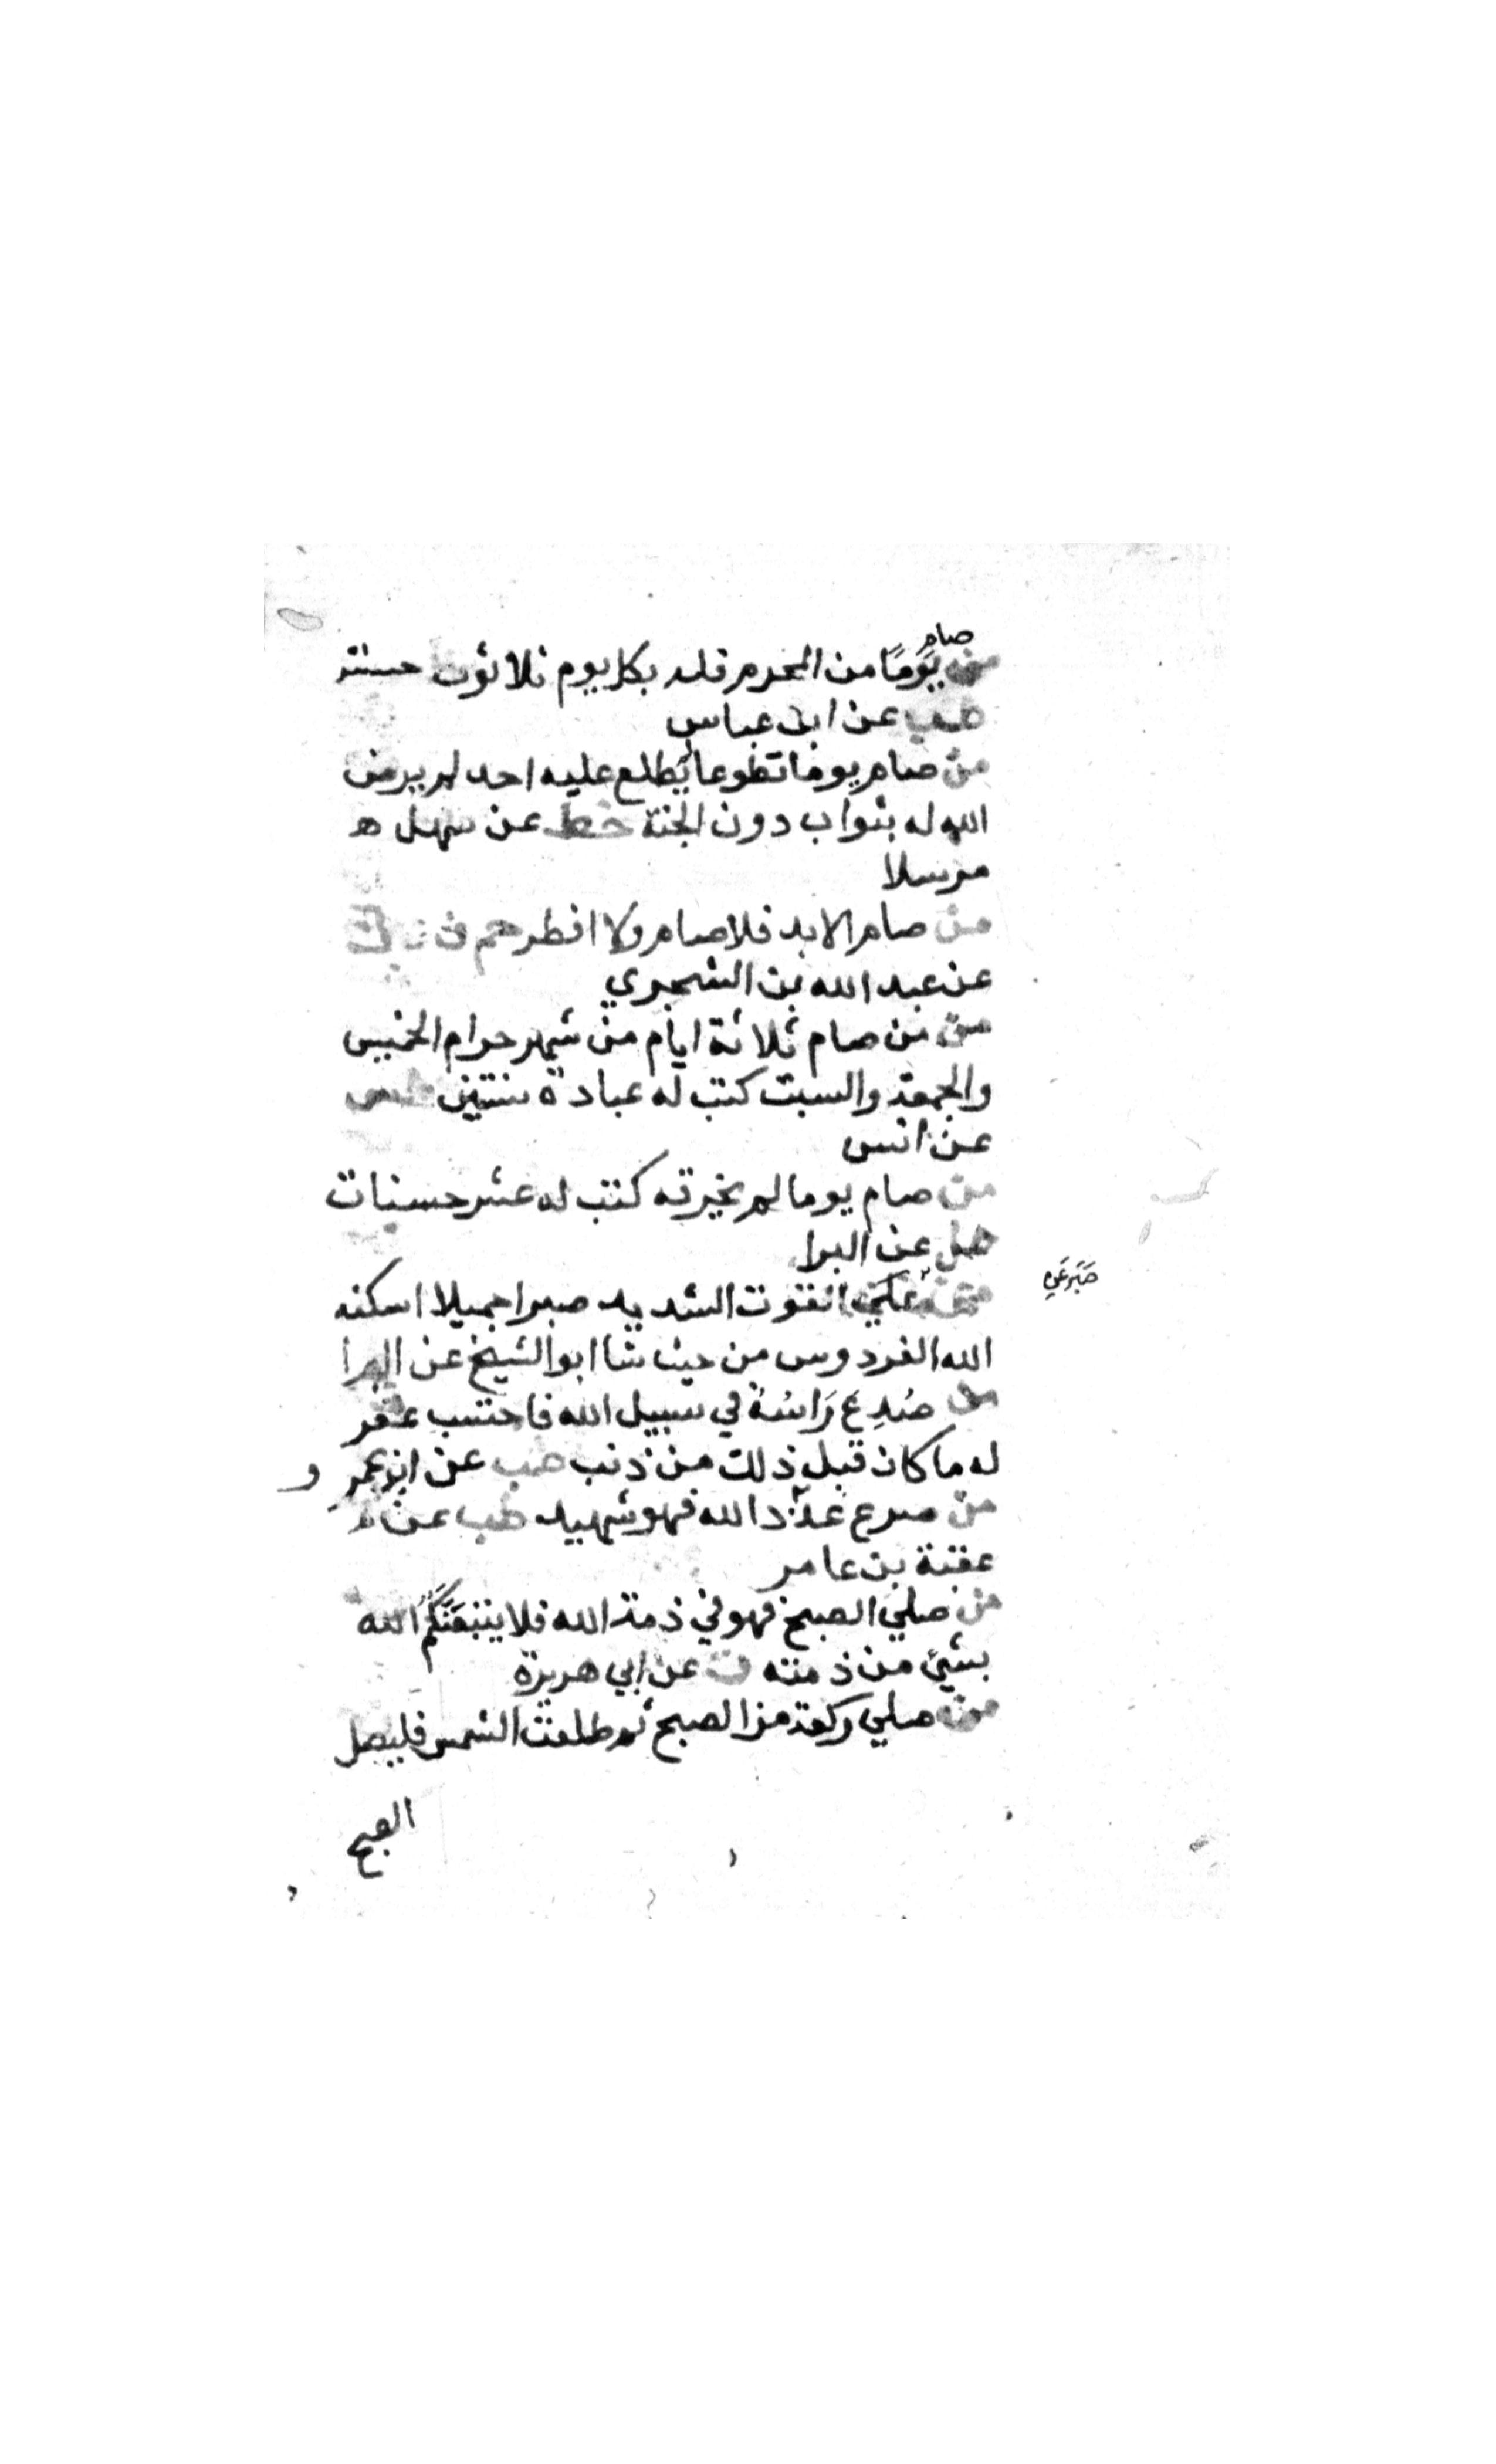 صام
من يَومًا من المحرم فله بكل يوم ثلاثون حسنة
طب عن ابن عباس
من صام يوما تطوعا يطلع عليه احد لم يرض
الله له بثواب دون الجنة خط عن سهل ه
مرسلا
من صام الابد فلا صام ولا افطر حم ن ه ك
عن عبد الله بن الشجري
من من صام ثلاثة ايام من شهر حرام الخميس
والجمعة والسبت كتب له عبادة سنتين طس
عن انس
من صام يوما لم يخرقه كتب له عشر حسنات
حل عن البرا
صَبَر عَلي
من علي القوت الشديد صبرا جميلا اسكنه
الله الفردوس من حيث شا ابو الشيخ عن البرا
من صُدِعَ رَاسُهُ في سبيل الله فاحتسب غفر
له ما كان قبل ذلك من ذنب طب عن ابن عمرو
من صرع عن دابته فهو شهيد طب عن
عقبة بن عامر
من صلي الصبح فهو في ذمة الله فلا يتبعَنَّكُم الله
بشيً من ذمته ت عن ابي هريرة
من صلي ركعة من الصبح ثم طلعت الشمس فليصل
الصبح